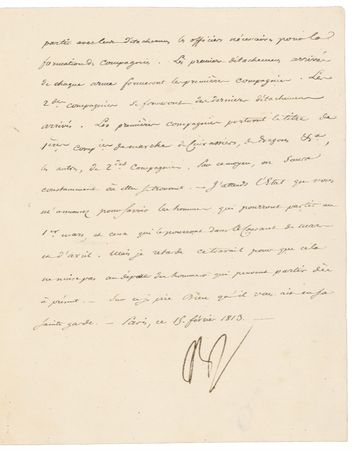 partir avec leur détachemens les officiers nécessaires pour la
formation des compagnies. Les premiers détachemens arrivés
de chaque arme formeront la première compagnie. Les
2des compagnies se formeront des derniers détachemens
arrivés. Les premières compagnies porteront le titre de
1ères compies de marche de Cuirassiers, de Dragons &a
les autres, de 2des compagnies. Par ce moyen, on saura
constamment à s'en reconnaître. J'attends l'Etat que vous
m'annoncez pour savoir les hommes qui pourront partir au
1er mars et ceux qui le pourront dans le courant de mars
et d'avril. Mais je retarde ce travail pour que cela
ne nuise pas au départ des hommes qui peuvent partir dès
à présent. Sur ce je prie Dieu qu'il vous ait en sa
Sainte garde. — Paris, ce 15. février 1813. —